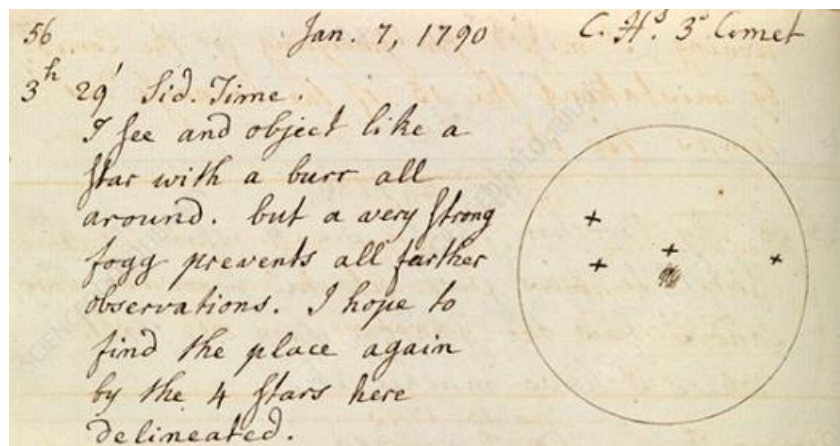 56 Jan. 7, 1790 C. H's. 3d Comet
3h 29' Sid. Time.
I see and object like a
star with a burr all
around. but a very strong
fogg prevents all farther
observations. I hope to
find the place again
by the 4 stars here
delineated.